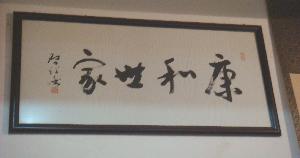 康和世家